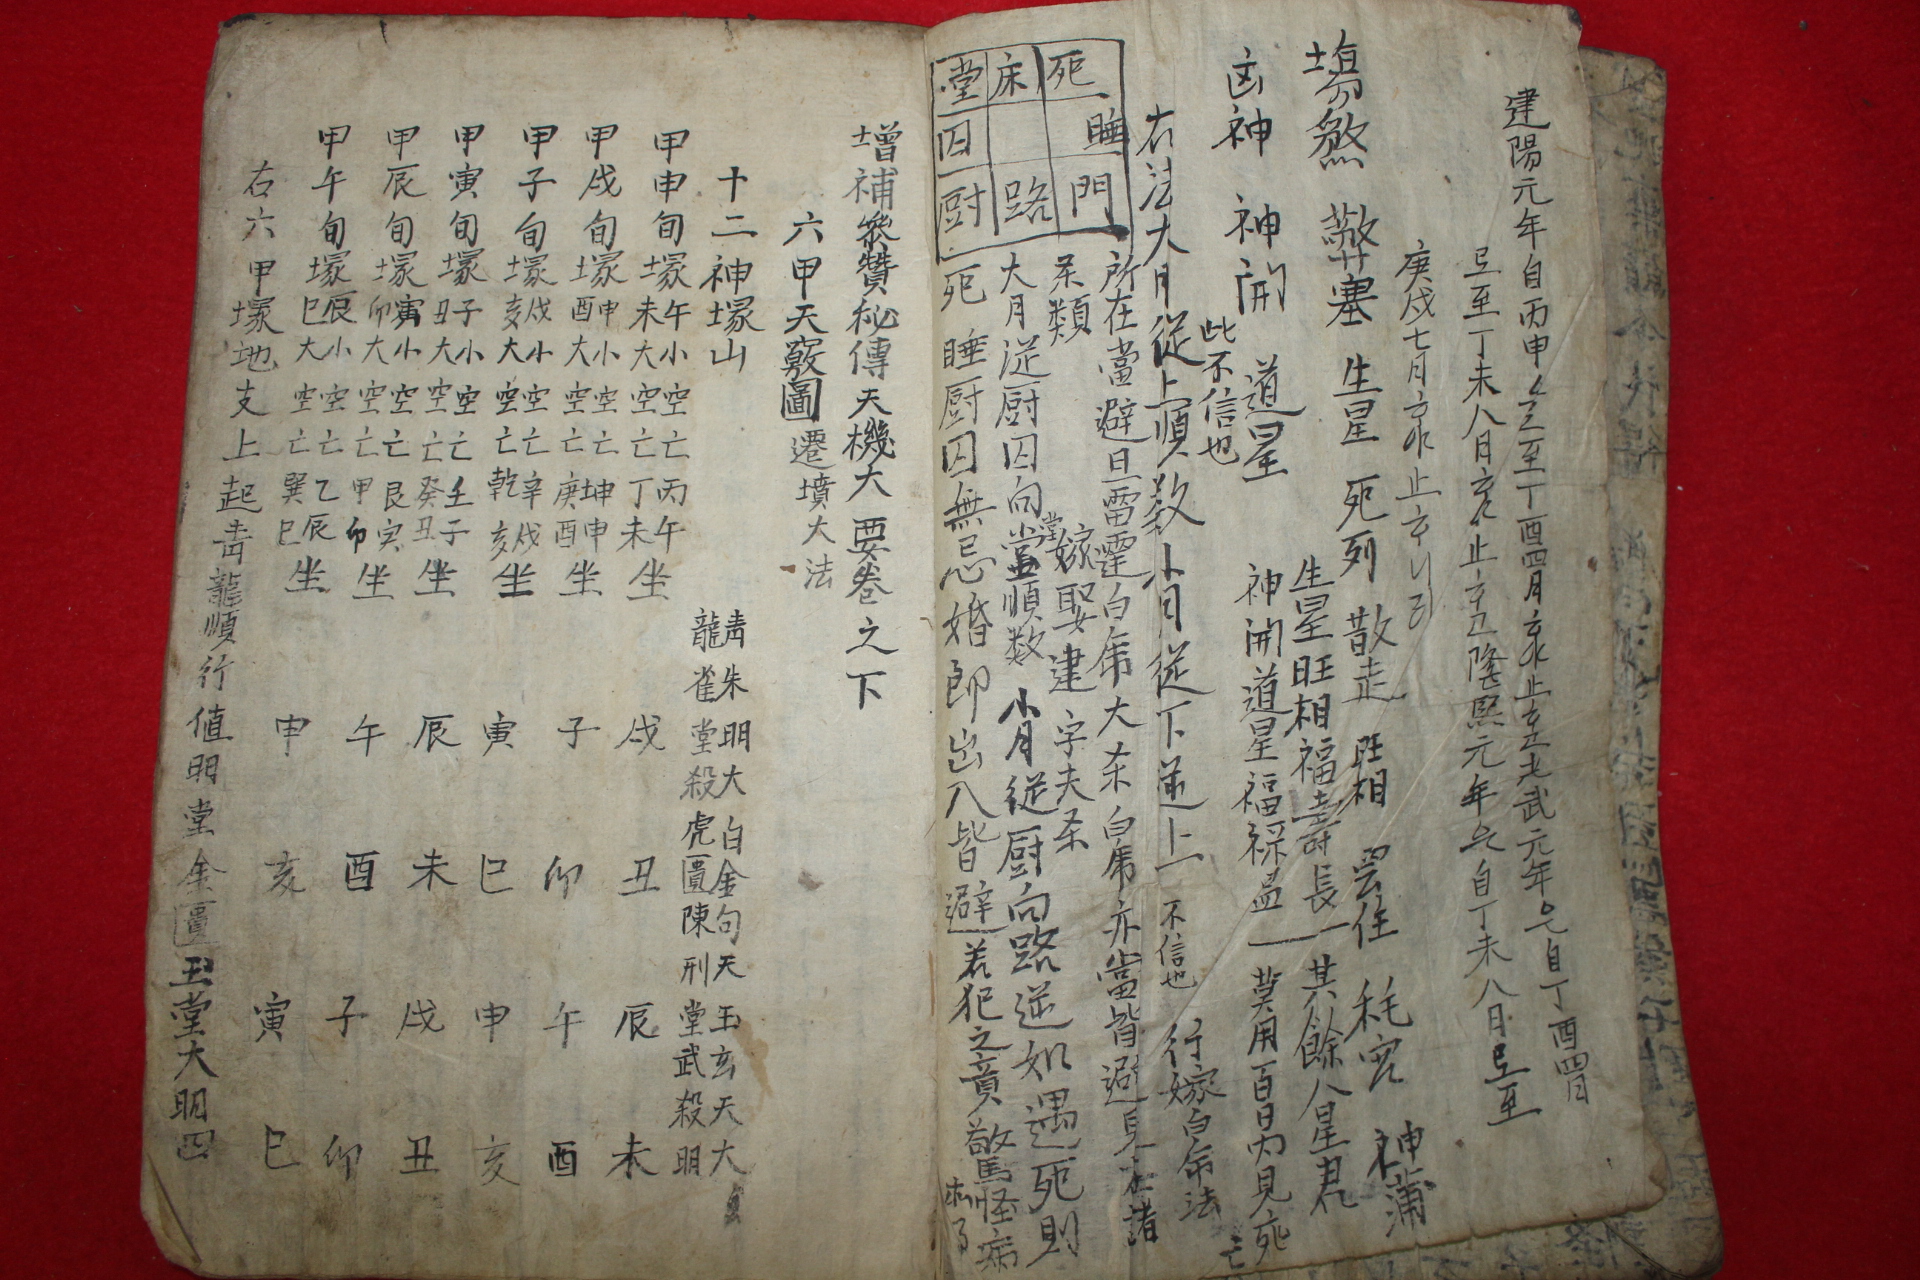 建陽元年自丙申 至丁酉四月 止 光武元年 自丁酉四月
至丁未八月 止 隆熙元年 自丁未八月 至
庚戌七月 止
塲煞 弊塞 生星 死列 散走 旺相 害住 耗害 神蒲
生星旺相福壽長 其餘八星君
凶神 神開 道星 神開道星福祿昌 莫用百日內見死亡
此不信也
右法大月從上順数小月從下逆上 不信也 行嫁白虎法
死 床 堂
睡 囚
門 路 厨
所在當避且雷霆白虎大杀白虎亦當皆避見 諸
杀類 嫁娶建字夫杀
大月從厨囚向堂順数 小月從厨向路逆如遇死則
死睡厨囚無忌婚郎出入皆避 若犯之竟驚怪病
增補叅贊秘傳天機大要卷之下
六甲天竅圖 遷墳大法
十二神塚山 青龍 朱雀 明堂 大殺 白虎 金匱 句陳 天刑 玉堂 玄武 天殺 大明
甲申旬塚 午小空亡丙午 未大空亡丁未 坐 戌 丑 辰 未
甲戌旬塚 申小空亡坤申 酉大空亡庚酉 坐 子 卯 午 酉
甲子旬塚 戌小空亡辛戌 亥大空亡乾亥 坐 寅 巳 申 亥
甲寅旬塚 子小空亡壬子 丑大空亡癸丑 坐 辰 未 戌 丑
甲辰旬塚 寅小空亡艮寅 卯大空亡甲卯 坐 午 酉 子 卯
甲午旬塚 辰小空亡乙辰 巳大空亡巽巳 坐 申 亥 寅 巳
右六甲塚地支上起青龍順行値明堂金匱玉堂大明四